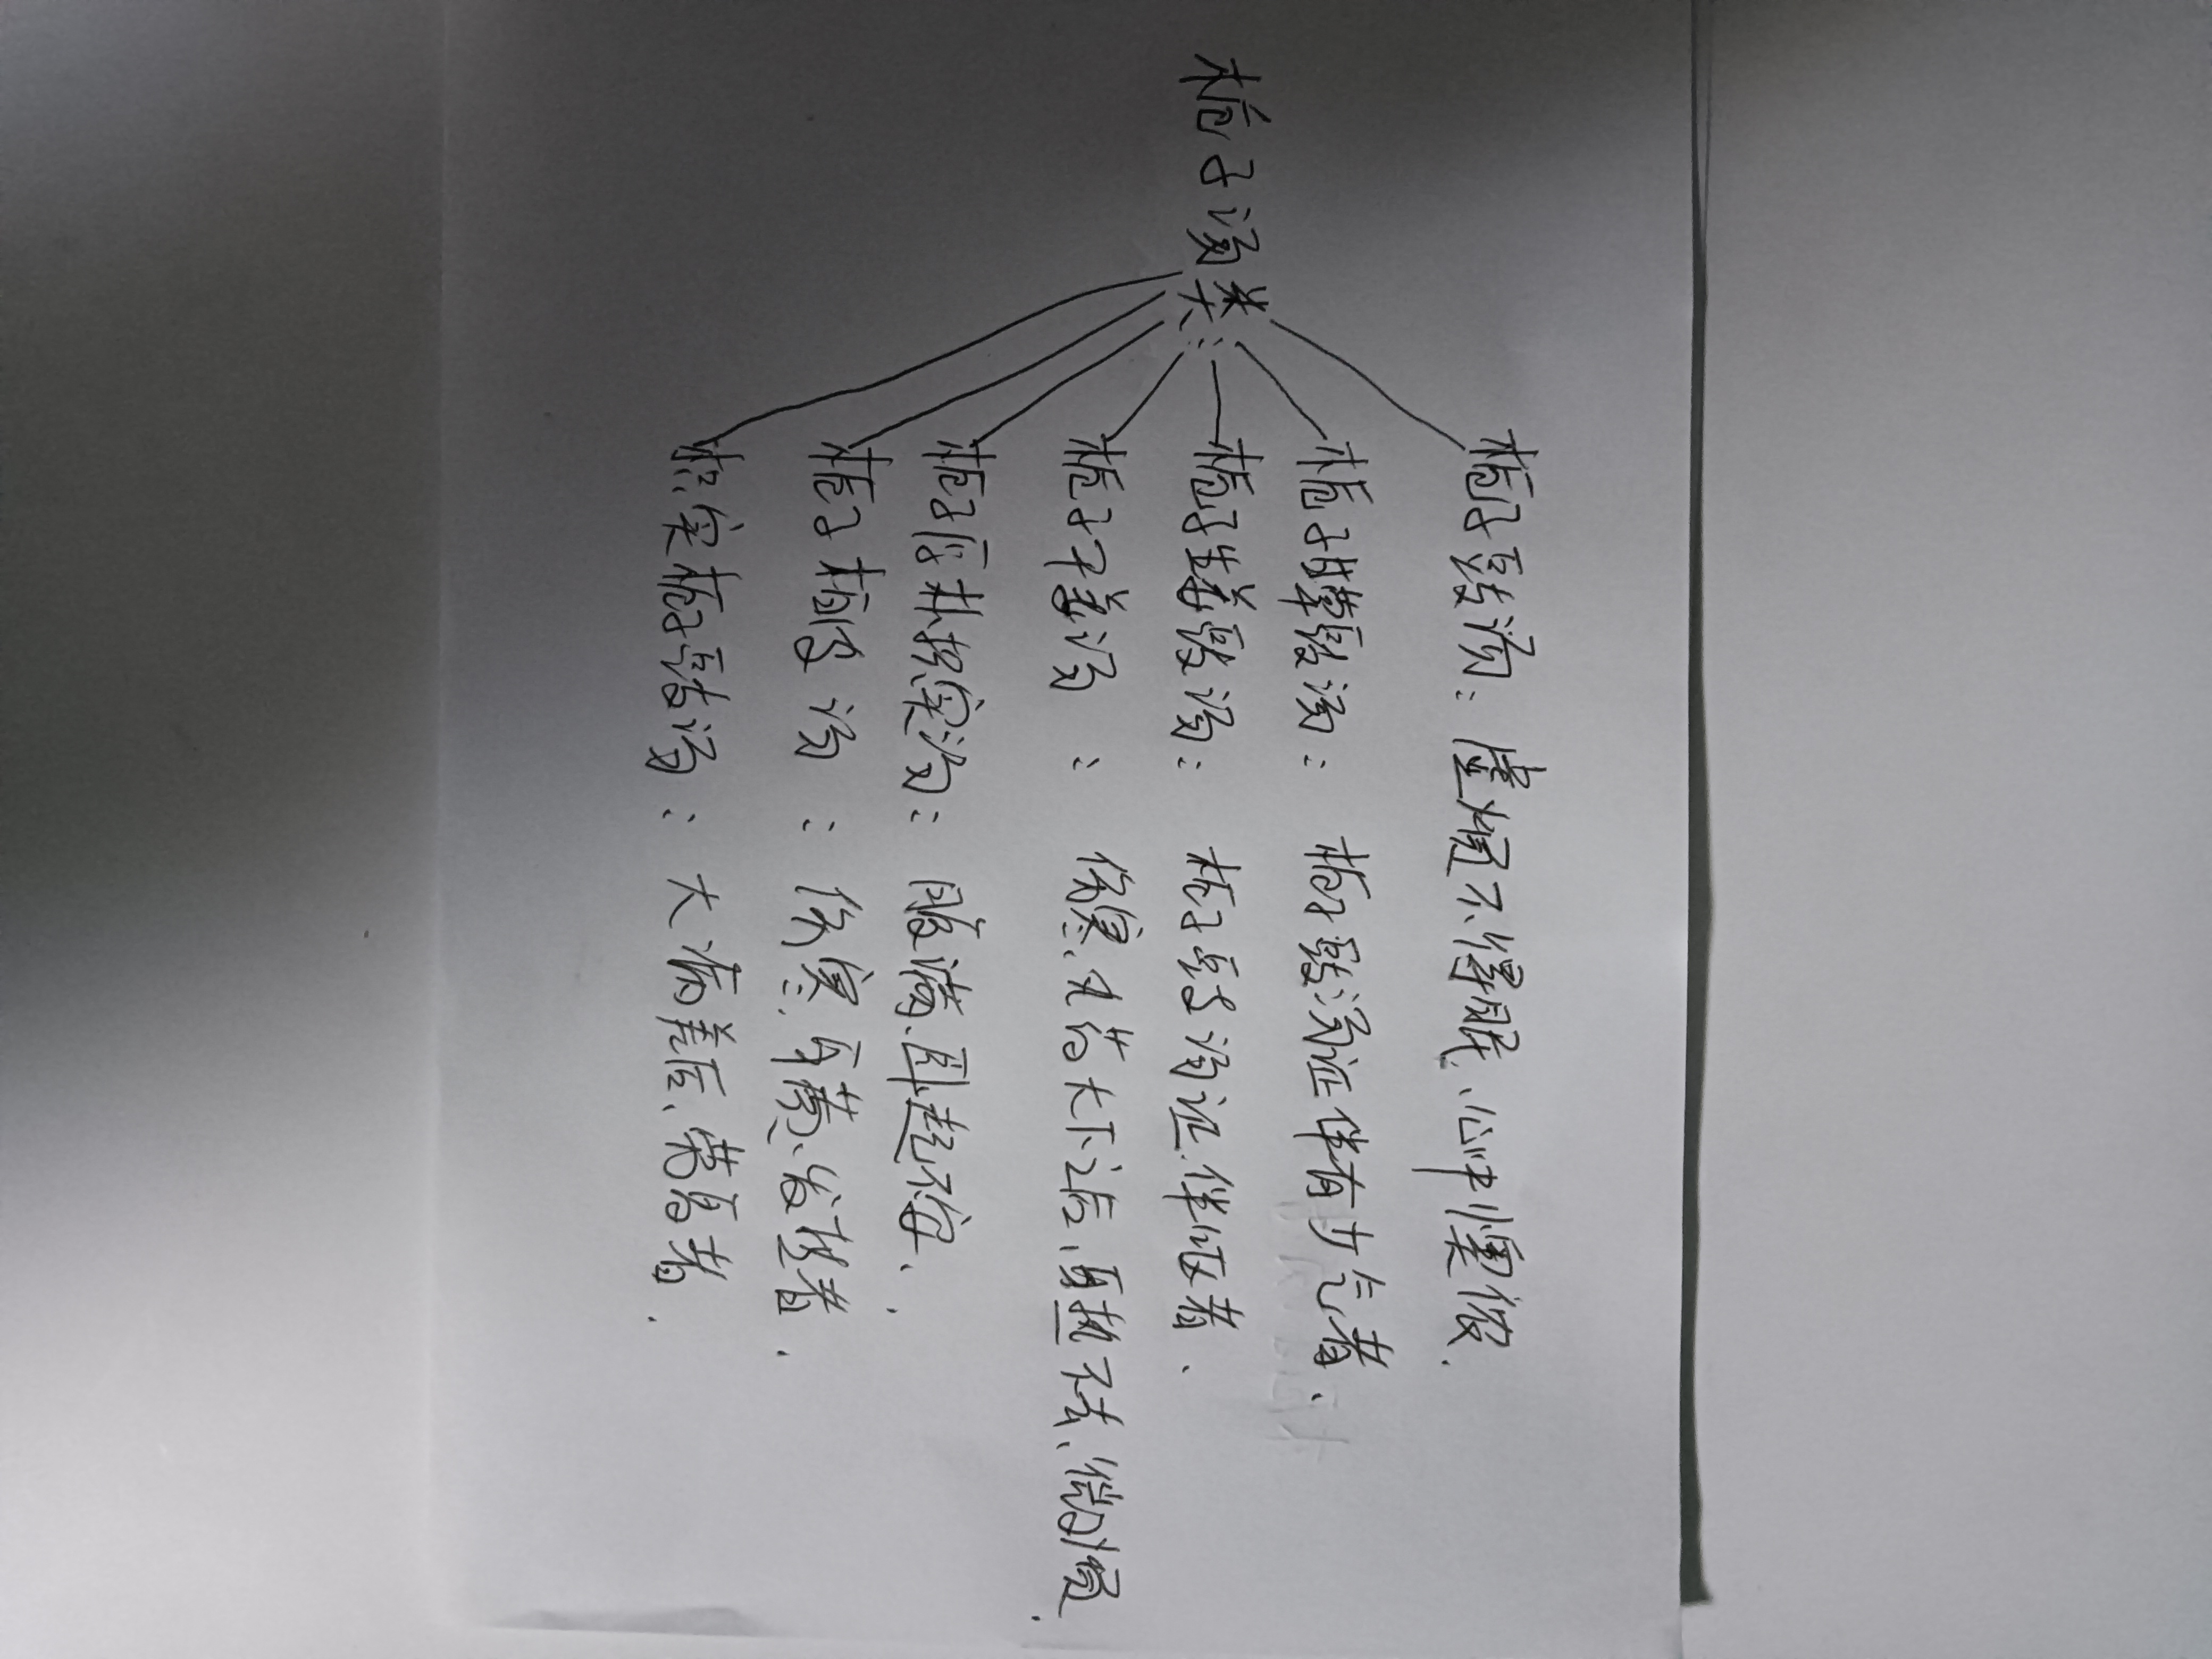 栀子汤类:
栀子豉汤: 虚烦不得眠、心中懊侬.
栀子甘草豉汤: 栀子豉汤证伴有少气者、
栀子生姜豉汤: 栀子豉汤证、伴呕者、
栀子干姜汤: 伤寒、丸药大下之后、身热不去、微烦.
栀子厚朴枳实汤: 腹满、卧起不安、.
栀子柏皮汤: 伤寒、身黄、发热者.
枳实栀子豉汤: 大病差后、劳复者.